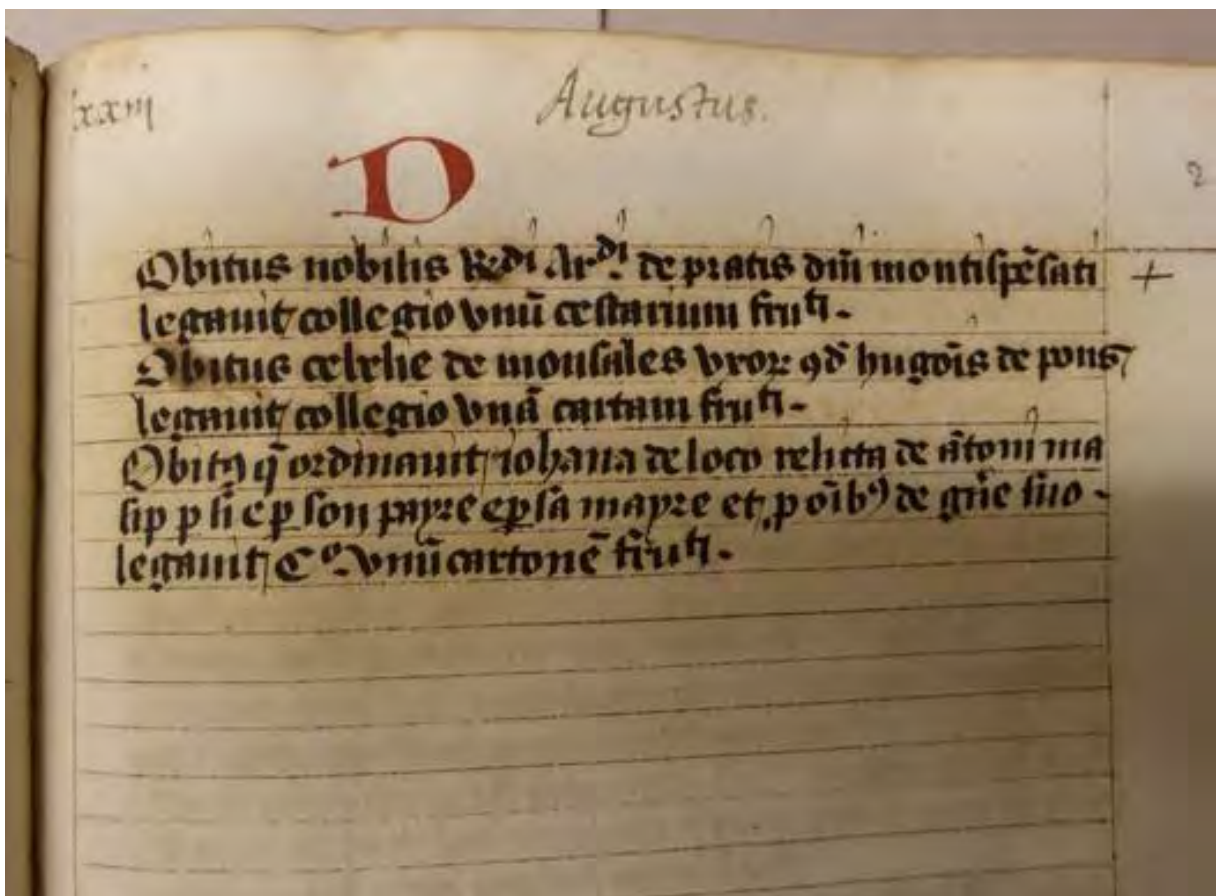 lxxiii
Augustus.
2
D
Obitus nobilis R̃di Arᵈⁱ. de pratis dñi montispẽsati +
legauit collegio vnũ cestarium fruᵗⁱ.
Obitus celelie de monsales vxor qd̃ hugõis de pons
legauit collegio vnã cartam fruᵗⁱ.
Obitꝰ q̃ ordinauit iohana de loco relicta de ãtoni ma
sip p si e p son payre e p sã mayre et p oĩbꝰ de gñe suo.
legauit Cᵒ. vnũ cartonẽ fruᵗⁱ.